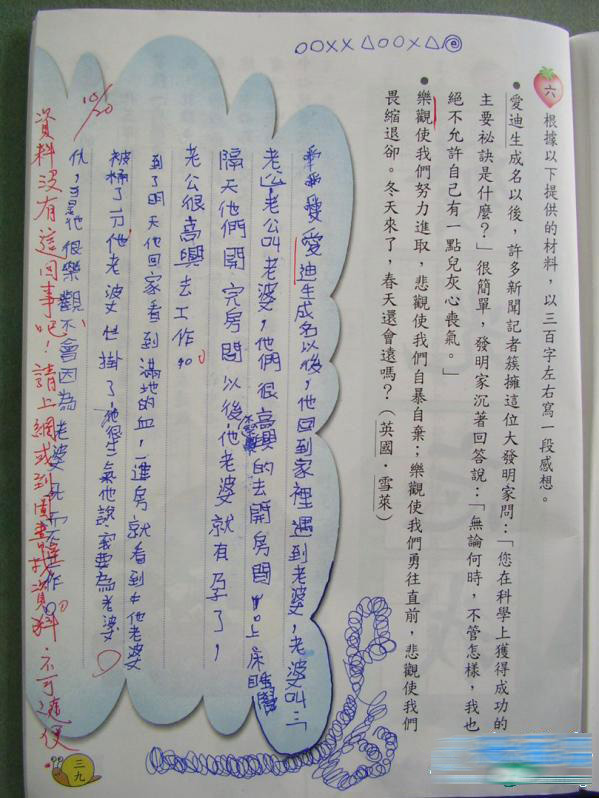 ○○XX△○○X△
六 根據以下提供的材料，以三百字左右寫一段感想。
●愛迪生成名以後，許多新聞記者簇擁這位大發明家問：「您在科學上獲得成功的
主要祕訣是什麼？」很簡單，發明家沉著回答說：「無論何時，不管怎樣，我也
絕不允許自己有一點兒灰心喪氣。」
●樂觀使我們努力進取，悲觀使我們自暴自棄；樂觀使我們勇往直前，悲觀使我們
畏縮退卻。冬天來了，春天還會遠嗎？（英國．雪萊）
愛迪生成名以後，他回到家裡遇到老婆，老婆叫二
老公，老公叫老婆，他們很高興的去開房間上床睡覺
隔天他們開完房間以後，他老婆就有孕了，
老公很高興去工作
到了明天他回家看到滿地的血，一進房就看到他老婆
被桶了一刀他老婆也掛了，他很生氣他說我要為老婆
仇，可是他很樂觀不會因為老婆死而不工作
10/20
資料沒有這回事吧！請上網或到圖書找資料，不可隨便。
三九